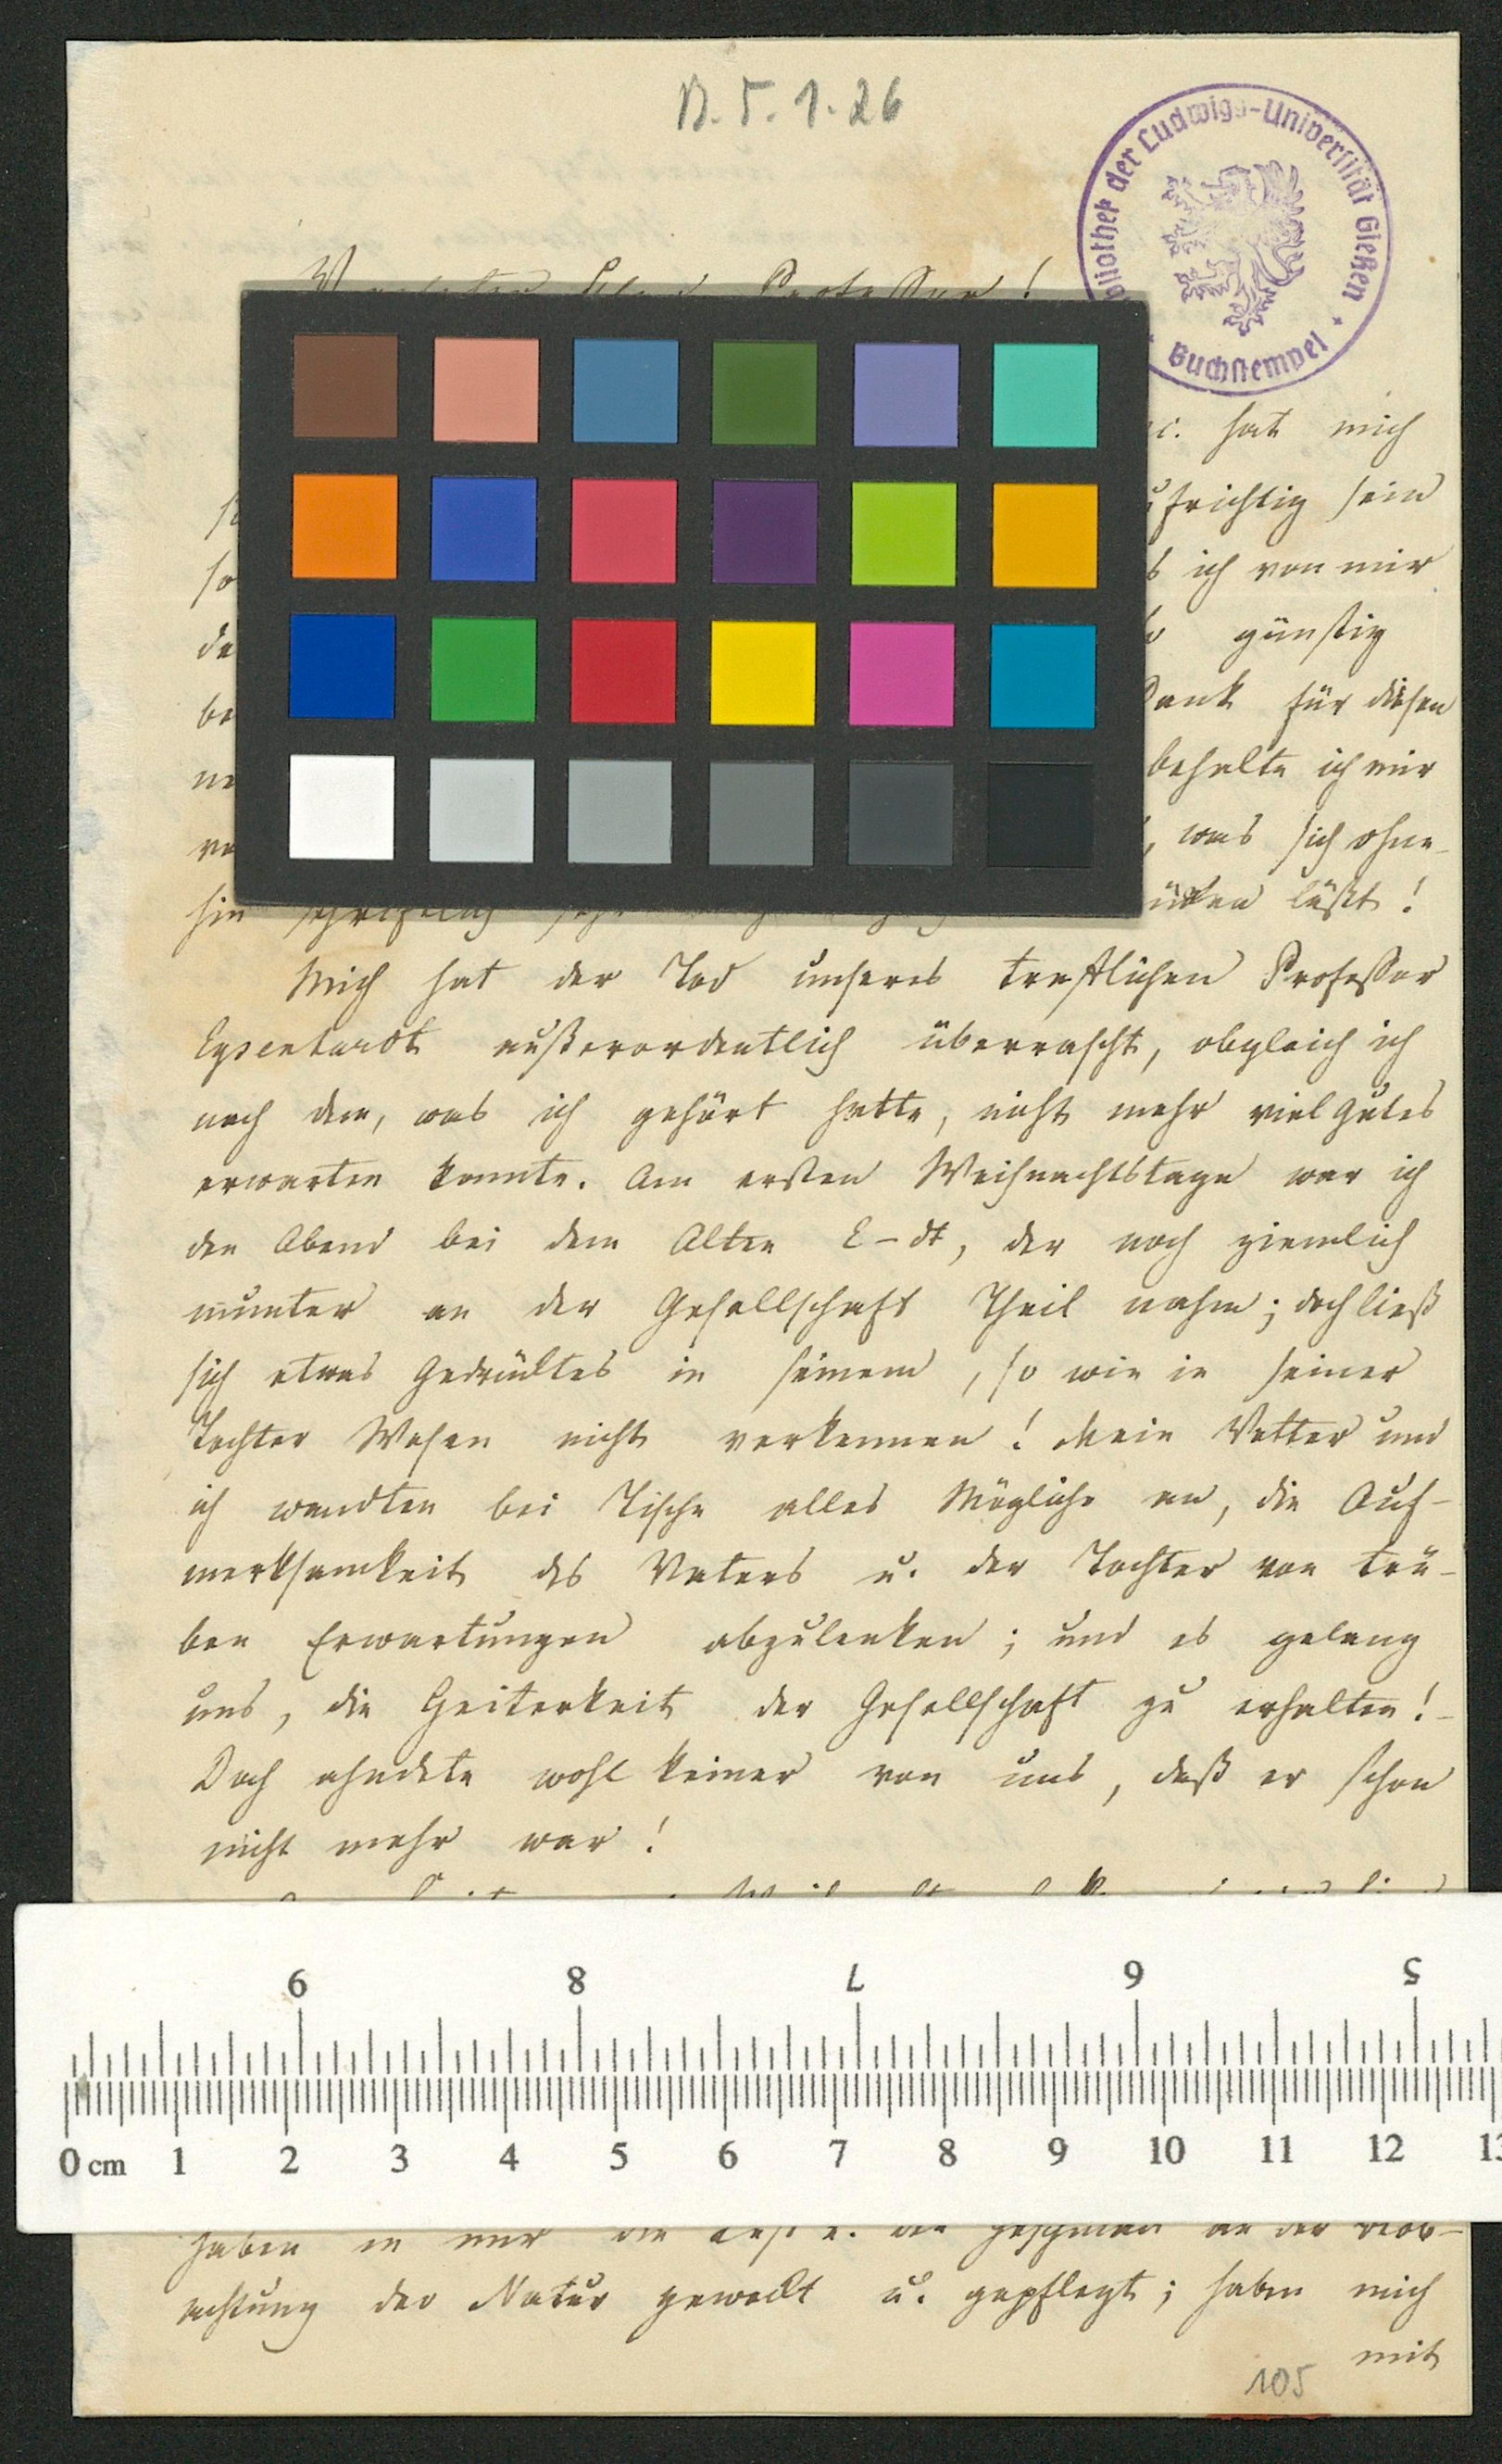 B. 5. 1. 26
Bibliothek der Ludwigs-Universität Gießen
Buchstempel
Professor!
hat mich
aufrichtig sein
so
ich von mir
günstig
Dank für diesen
behalte ich mir
, was sich ohne-
hin läßt!
Mich hat der Tod unseres trefflichen Professor
Eysenhardt außerordentlich überrascht, obgleich ich
nach dem, was ich gehört hatte, nicht mehr viel Gutes
erwarten konnte. Am ersten Weihnachtstage war ich
den Abend bei dem Alten E-dt, der noch ziemlich
munter an der Gesellschaft Theil nahm; doch ließ
sich etwas Gedrücktes in seinem, so wie in seiner
Tochter Wesen nicht verkennen! Mein Vetter und
ich wandten bei Tische alles Mögliche an, die Auf-
merksamkeit des Vaters u. der Tochter von trü-
ben Erwartungen abzulenken; und es gelang
uns, die Heiterkeit der Gesellschaft zu erhalten!-
Doch ahndete wohl keiner von uns, daß er schon
nicht mehr war!
9 8 7 6 5
0 cm 1 2 3 4 5 6 7 8 9 10 11 12 13
haben in mir die Lust u. den an der Beob-
achtung der Natur geweckt u. gepflegt; haben mich
mit
105